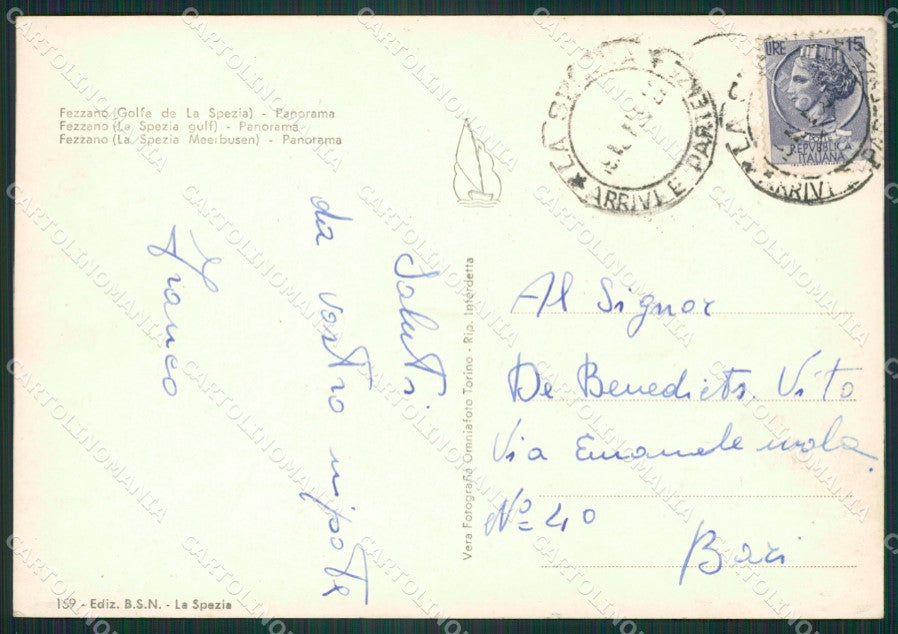 Fezzano (Golfo de La Spezia) - Panorama
Fezzano (La Spezia gulf) - Panorama
Fezzano (La Spezia Meerbusen) - Panorama
Saluti
da vostro nipote
Franco
Vera Fotografia Omniafoto Torino - Rip. Interdetta
LA SPEZIA
ARRIVI E PARTENZE
LIRE 15
REPVBBLICA
ITALIANA
ARRIVI E PARTENZE
Al Signor
De Benedictis Vito
Via Emanuele mola
Nº 40
Bari
159 - Ediz. B.S.N. - La Spezia
CARTOLINOMANIA